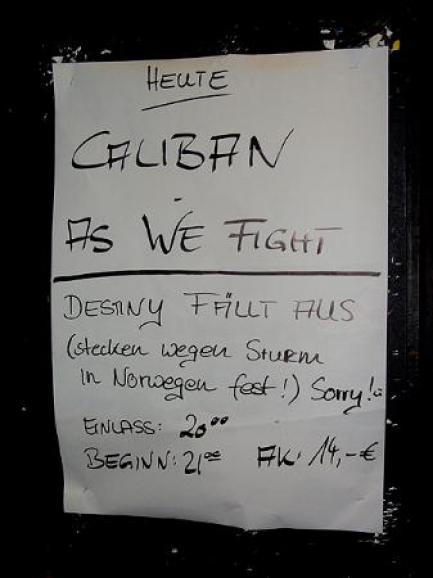 HEUTE
CALIBAN
-
AS WE FIGHT
DESTINY FÄLLT AUS
(stecken wegen STURM
in Norwegen fest!) Sorry!
EINLASS: 20⁰⁰
BEGINN: 21⁰⁰ AK: 14,-€